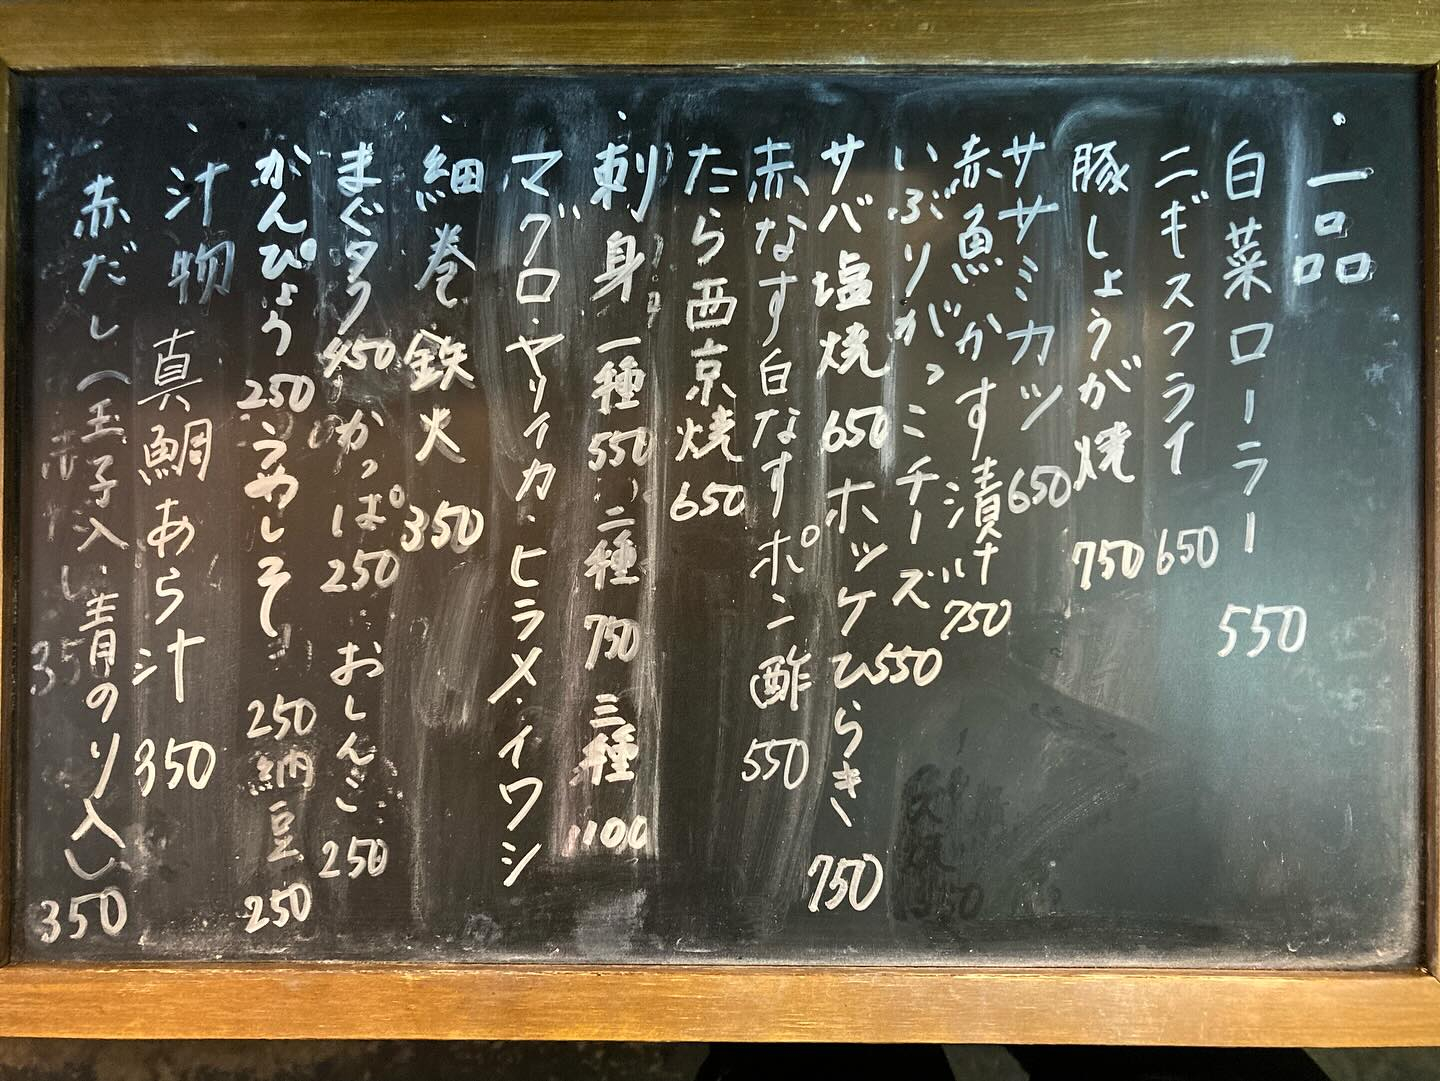 ・一品
白菜ローラー 550
ニギスフライ 650
豚しょうが焼 750
ササミカツ 650
赤魚かす漬け 750
いぶりがっこチーズ 550
サバ塩焼 650 ホッケひらき 750
赤なす白なすポン酢 550
たら西京焼 650
・刺身 一種 550 二種 750 三種 1100
マグロ・ヤリイカ・ヒラメ・イワシ
・細巻 鉄火 350
まぐタク 450 かっぱ 250 おしんこ 250
かんぴょう 250 うめしそ 250 納豆 250
・汁物 真鯛あら汁 350
赤だし(玉子入・青のり入) 350